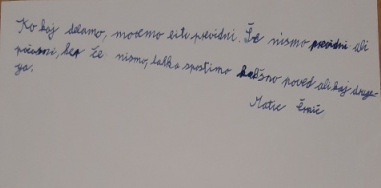 Ko kaj delamo, moramo biti previdni. Če nismo previdni ali
počasni, ker če nismo, lahko spustimo kakšno poved ali kaj druge-
ga.
Matic